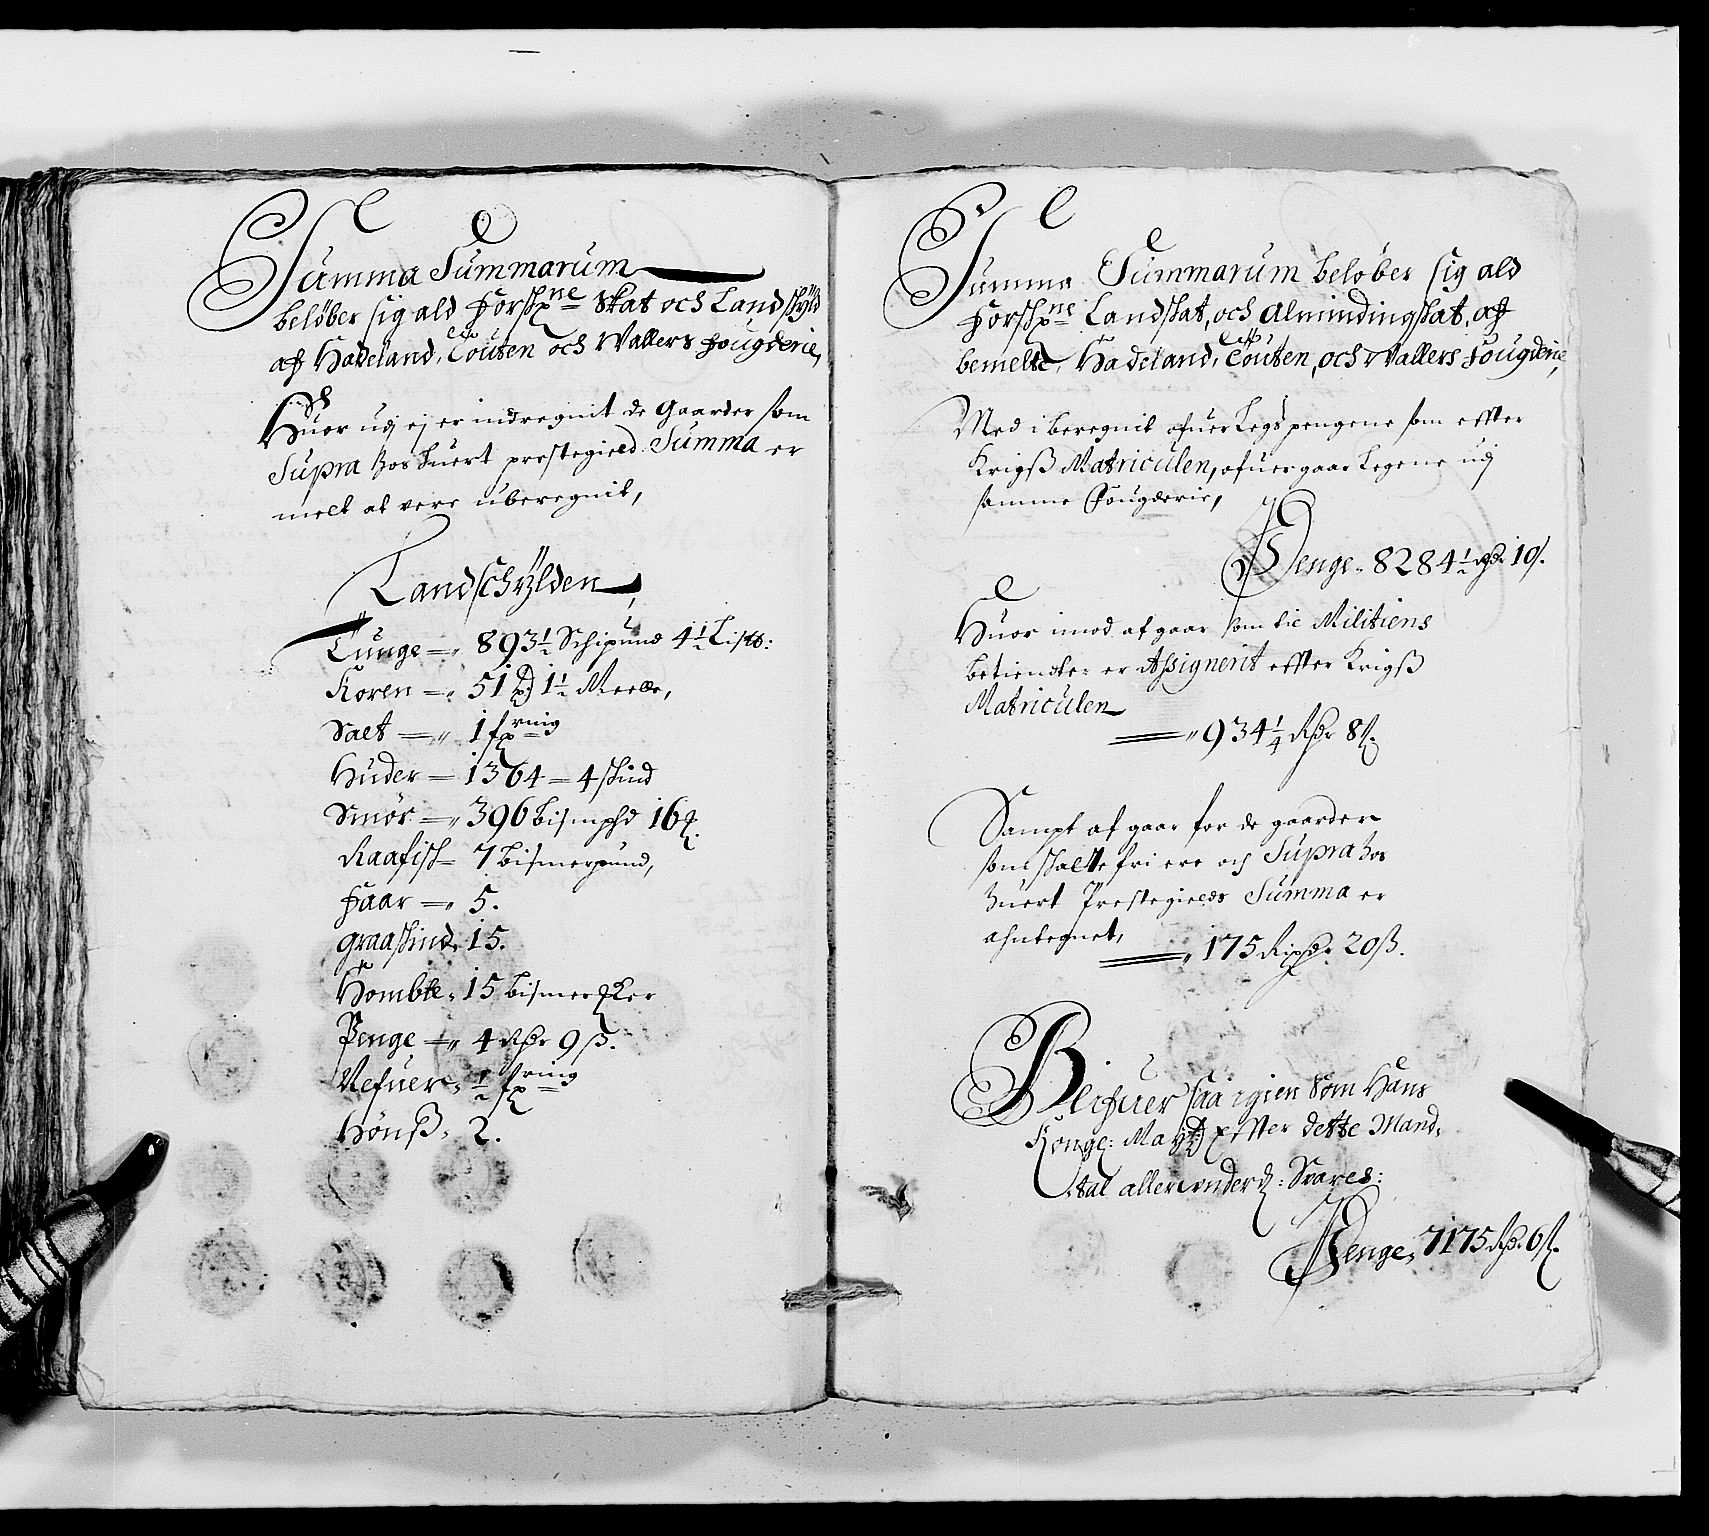 Summa Summarum
beløber sig ald forskne Skat och Landskyld
aff Hadeland, Touten och Wallers fougderie,
Huor udj ej er indregnit de Gaarder som
Supra hos huert prestegield Summa er
melt at vere uberegnit,
Landschÿlden,
Tunge = 893½ Schipund 4½ Lispd:
Koren = 51 pd 1½ Meele,
Salt = 1 frning
Huder = 1364 = 4 skind
Smör = 396 bismphd 16
Raafisch = 7 bismerpund,
faar = 5.
graaskind = 15.
Homble = 15 bismerker
Penge = 4 Rdr 9 ß.
Nefuer = ½ frning
Hönß = 2.
Summa Summarum beløber sig ald
forskne Landskat, och Almindingskat, aff
bemelte, Hadeland, Touten, och Wallers fougderie,
Med i beregnit ofuerlegs pengene som effter
Krigß Matriculen, ofuergaar Legene udj
samme Fougderie,
Penge = 8284½ Rdr 10 ß.
Huor imod afgaar som till Militiens
betiendter er Assignerit effter Krigß
Matriculen
= 934¼ Rdr 8 ß.
Sampt afgaar for de gaarder
som skatte fri ere och Supra hos
huert Prestegields Summa er
antegnet,
= 175 Rixdr 20 ß.
Blifuer saa igien Som Hans
Konge: Maytz effter dette Mand-
tal allerunderd: Svares:
Penge = 7175 Rdr 6 ß.